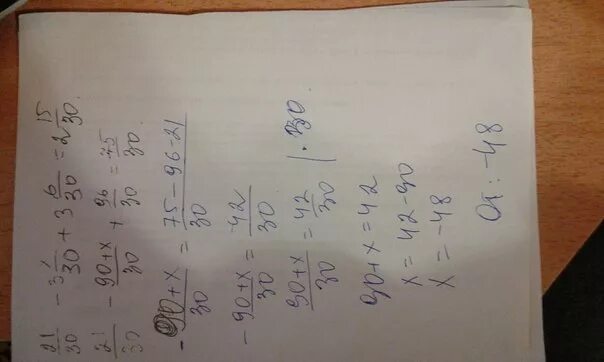 21/30 - 3 x/30 + 3 6/30 = 2 15/30
21/30 - 90+x/30 + 96/30 = 75/30
- 90+x/30 = 75-96-21/30
- 90+x/30 = - 42/30
90+x/30 = 42/30 | · 30
90+x = 42
x = 42-90
x = -48
От: -48